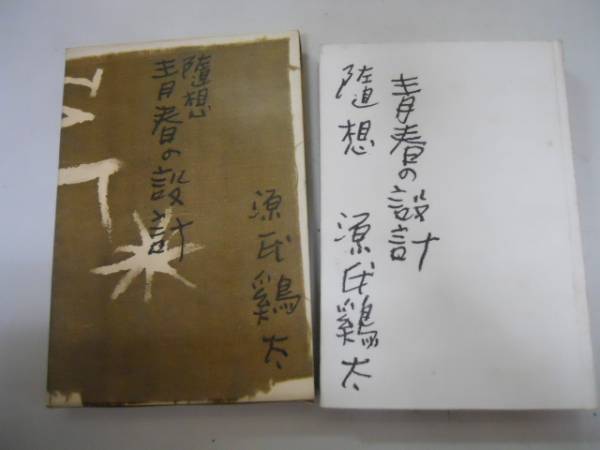 随想
青春の設計
源氏鶏太
青春の設計
随想
源氏鶏太